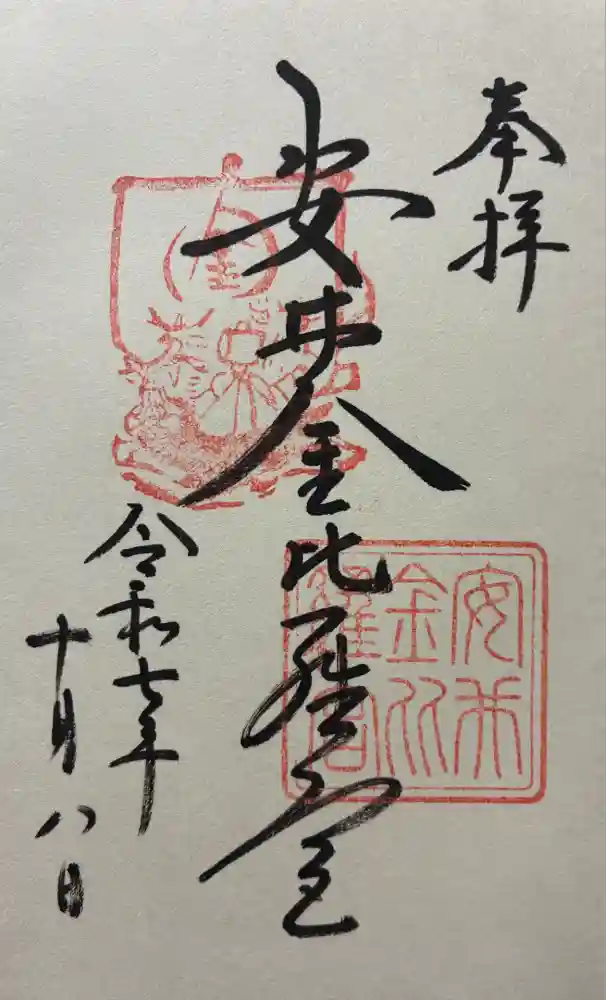 奉拝
安井金比羅宮
令和七年
十月八日
安井
金比
羅宮
金